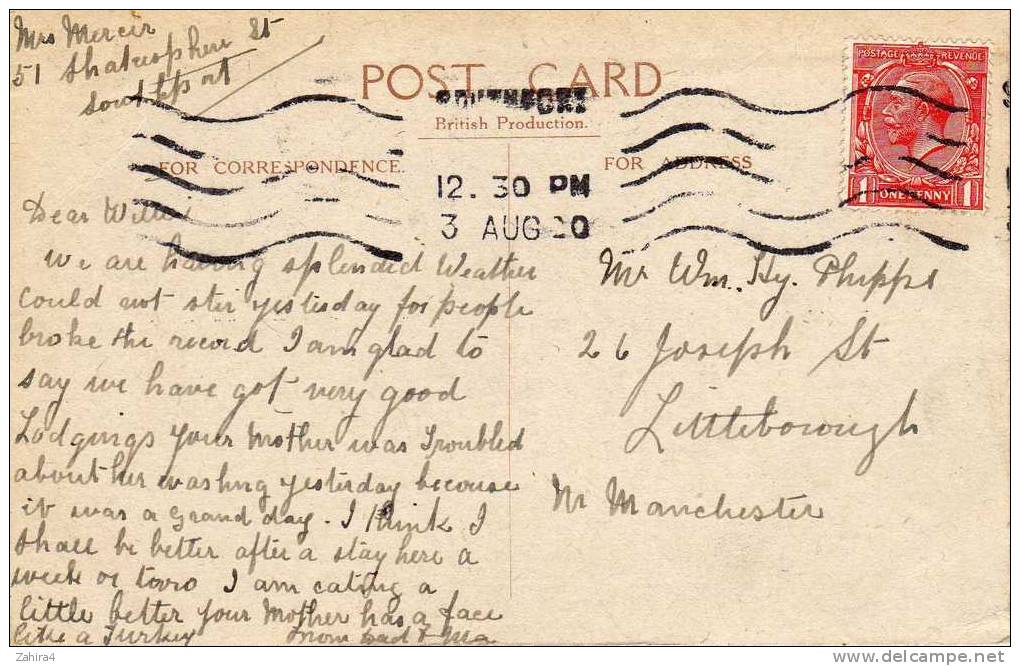 Mrs Mercer
51 Shakesphere St
Southport
POST CARD
SOUTHPORT
British Production.
FOR CORRESPONDENCE.
FOR ADDRESS
12. 30 PM
3 AUG 20
POSTAGE REVENUE
1 ONE PENNY 1
Dear Willie
we are having splendid Weather
could not stir yesterday for people
broke the record I am glad to
say we have got very good
Lodgings your Mother was Troubled
about her washing yesterday because
it was a grand day. I think I
shall be better after a stay here a
week or towo I am eating a
little better your Mother has a face
like a Turkey from Dad & Ma
Mr Wm. Hy. Phipps
26 Joseph St
Littleborough
Nr Manchester
Zahira4